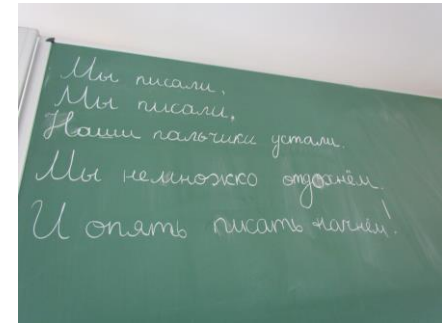 Мы писали,
Мы писали,
Наши пальчики устали.
Мы немножко отдохнём.
И опять писать начнём!